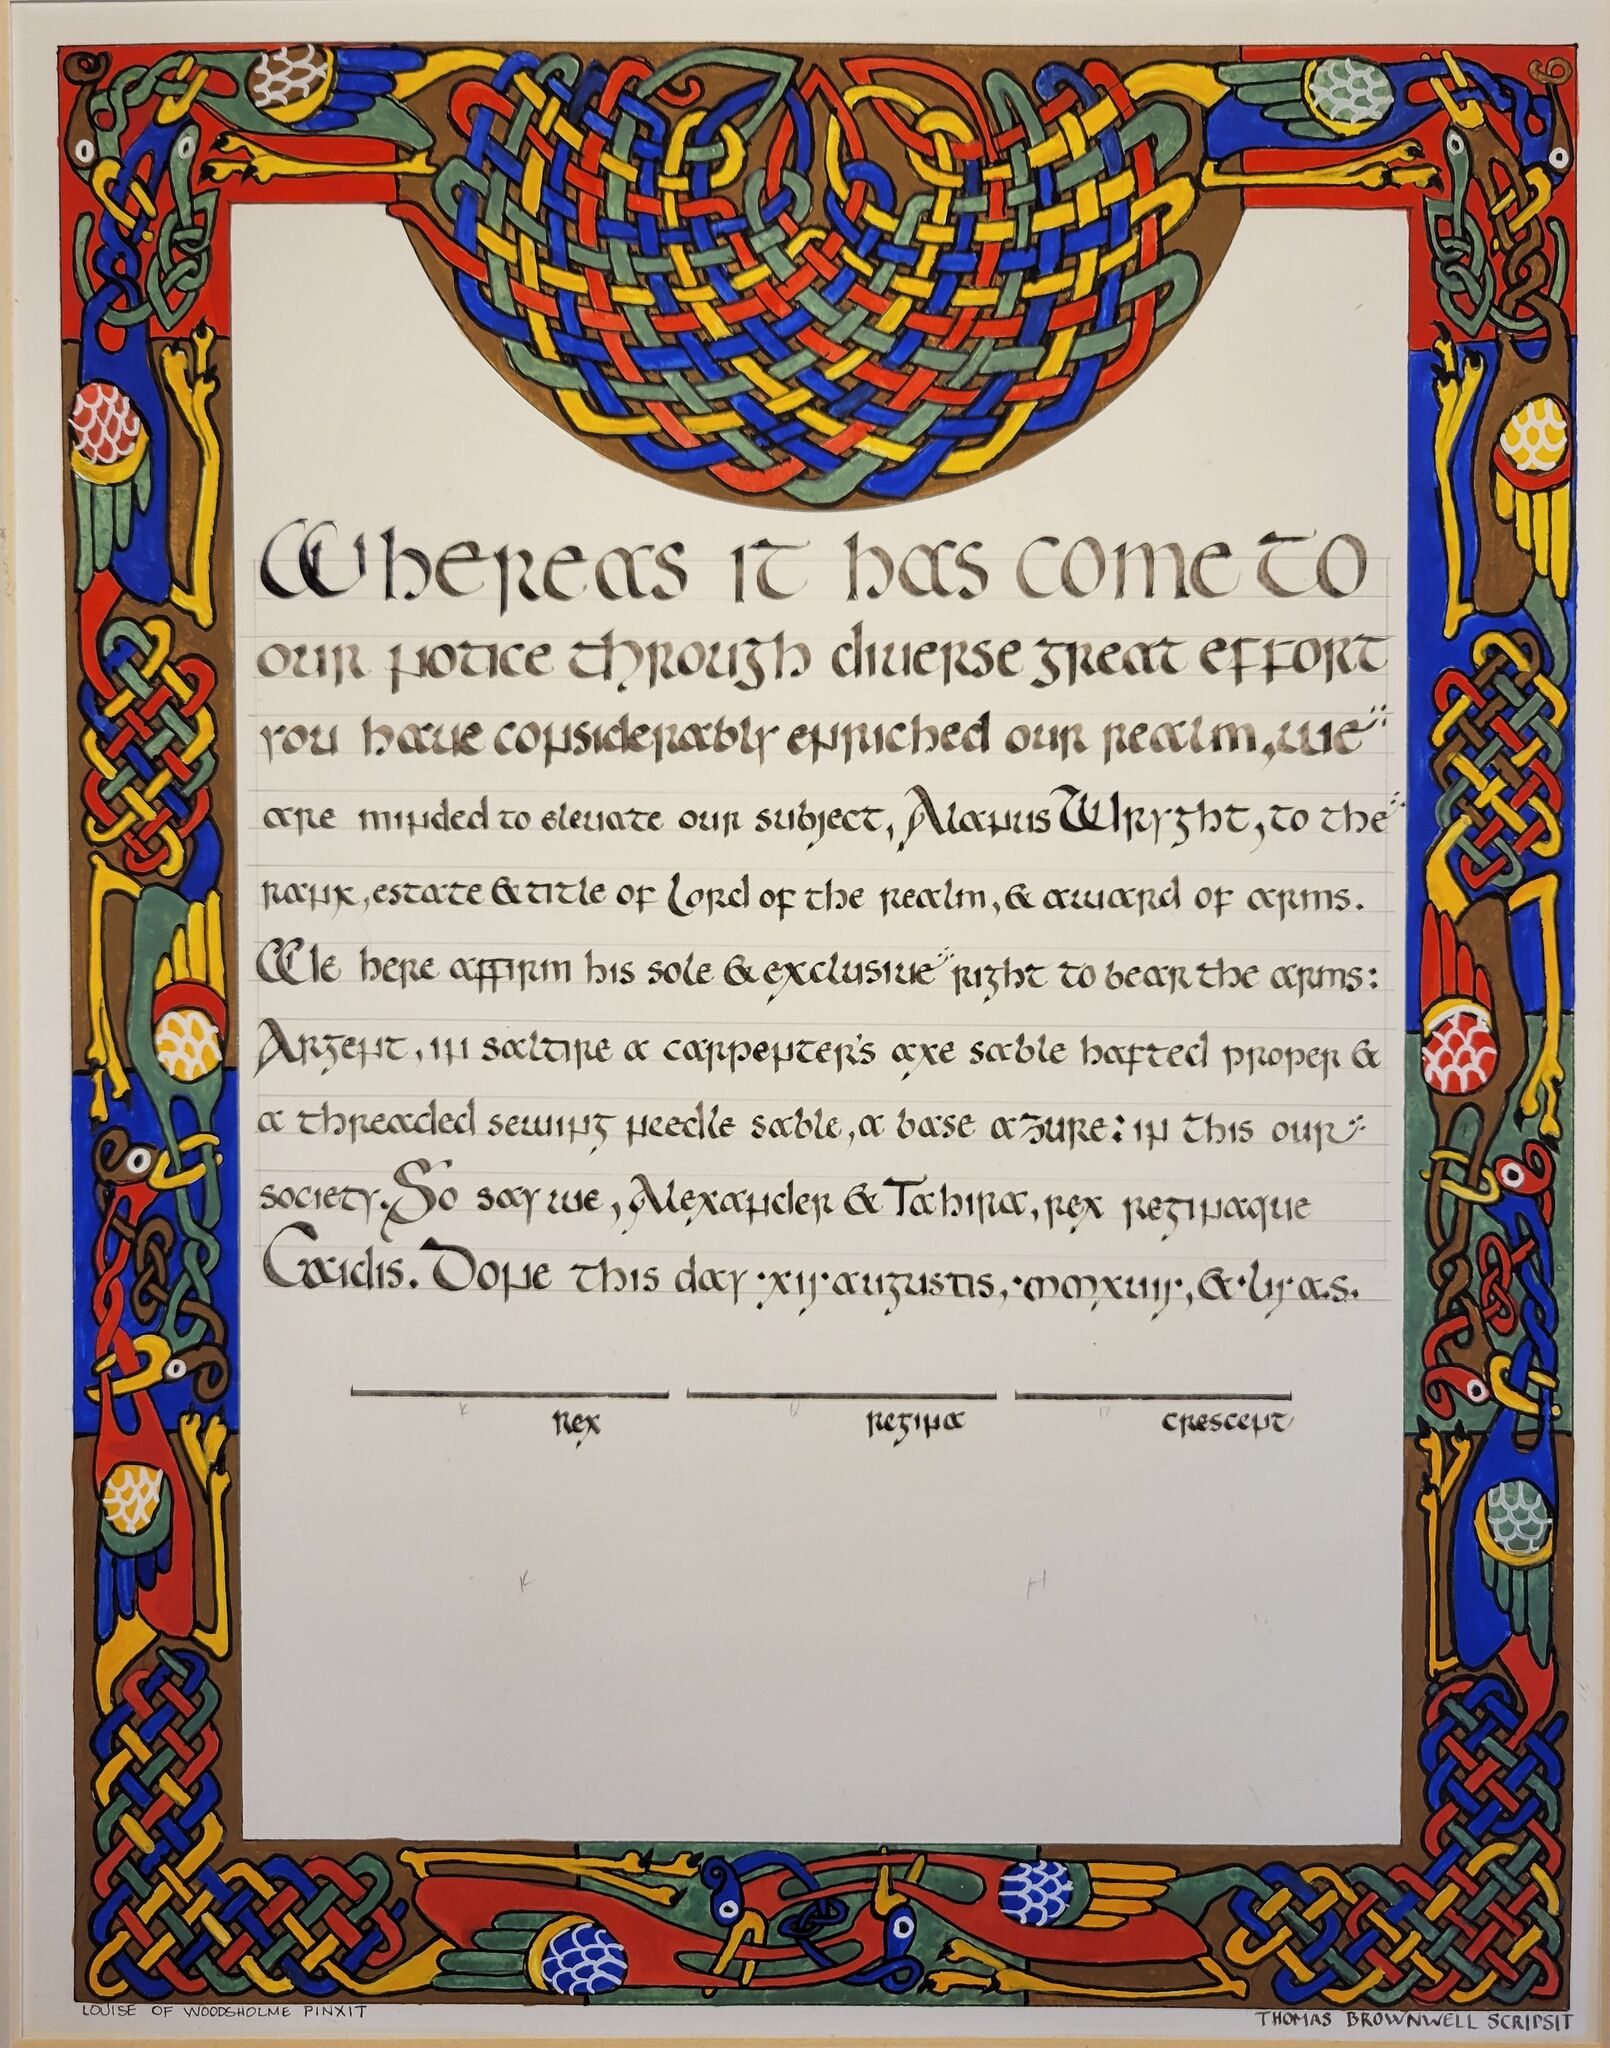 Whereas it has come to
our notice through diuerse great effort
you haue considerably enriched our realm, we
are minded to eleuate our subject, Alanus Wryght, to the
rank, estate & title of Lord of the realm, & award of arms.
We here affirm his sole & exclusiue right to bear the arms:
Argent, in saltire a carpenter's axe sable hafted proper &
a threaded sewing needle sable, a base azure: in this our
society. So say we, Alexander & Tahira, rex reginaque
Caidis. Done this day ·xij· augustis, ·mmxuij·, & ·lij· a.s.
rex regina crescent
K H
LOUISE OF WOODSHOLME PINXIT THOMAS BROWNWELL SCRIPSIT